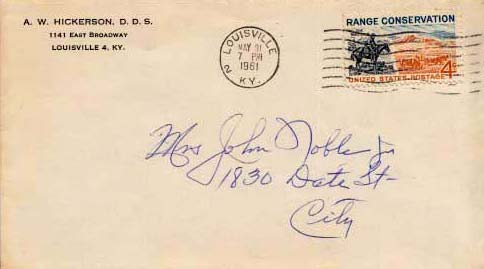 A. W. HICKERSON, D. D. S.
1141 EAST BROADWAY
LOUISVILLE 4, KY.
LOUISVILLE
2
MAY 31
7 PM
1961
KY.
RANGE CONSERVATION
UNITED STATES POSTAGE 4¢
Mrs John Noble Jr
1830 Date St-
City